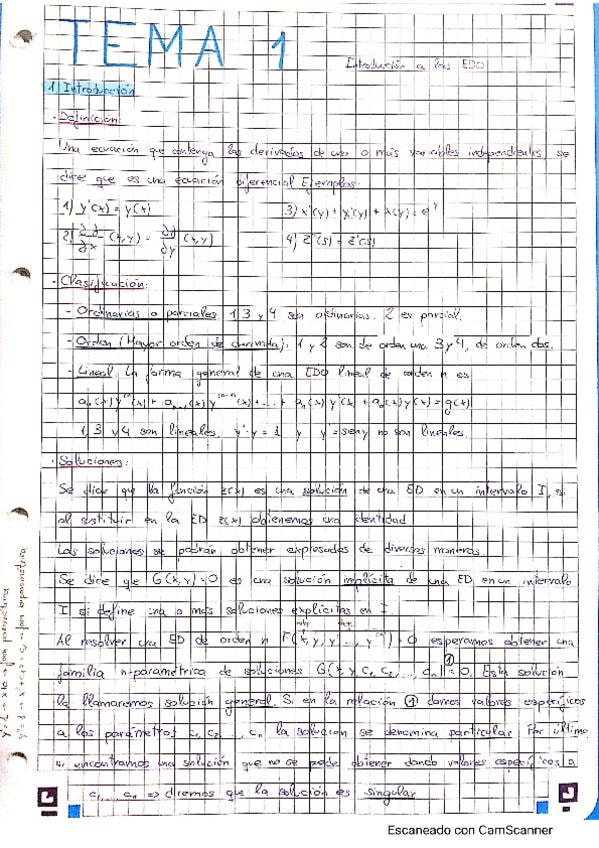 TEMA 1
Introducción a las EDO
1) Introducción
· Definición:
Una ecuación que contenga las derivadas de una o más variables independientes, se
dice que es una ecuación diferencial. Ejemplos:
1) y'(x) = y(x)
3) x''(y) + x'(y) + x(y) = e^y
2) ∂z/∂x (x,y) = ∂z/∂y (x,y)
4) z''(s) = z'(s)
· Clasificación:
- Ordinarias o parciales: 1, 3 y 4 son ordinarias. 2 es parcial.
- Orden (Mayor orden de derivada): 1 y 2 son de orden uno. 3 y 4, de orden dos.
- Lineal. La forma general de una EDO lineal de orden n es
aₙ(x) y⁽ⁿ⁾(x) + aₙ₋₁(x) y⁽ⁿ⁻¹⁾(x) + ... + a₁(x) y'(x) + a₀(x) y(x) = g(x)
1, 3 y 4 son lineales. y'·y = 1 y y' = seny no son lineales.
· Soluciones:
Se dice que la función z(x) es una solución de una ED en un intervalo I, si
al sustituir en la ED z(x) obtenemos una identidad
Las soluciones se podrán obtener expresadas de diversas maneras.
Se dice que G(x,y)=0 es una solución implícita de una ED en un intervalo
I si define una o más soluciones explícitas en I.
Al resolver una ED de orden n F(x, y, y', ..., y⁽ⁿ⁾) = 0 esperamos obtener una
familia n-paramétrica de soluciones G(x, y, c₁, c₂, ..., cₙ) = 0. ① Esta solución
la llamaremos solución general. Si en la relación ① damos valores específicos
a los parámetros c₁, c₂, ..., cₙ la solución se denomina particular. Por último
si encontramos una solución que no se puede obtener dando valores específicos a
c₁, ..., cₙ => diremos que la solución es singular
Escaneado con CamScanner